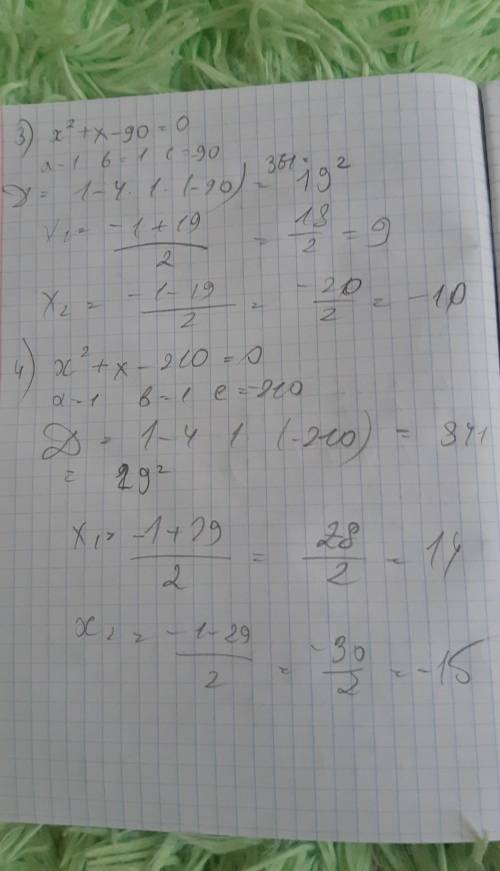 3) x² + x - 90 = 0
a - 1 b = 1 c = -90
D = 1 - 4 · 1 · (-90) = 361 = 19²
x₁ = (-1 + 19)/2 = 18/2 = 9
x₂ = (-1 - 19)/2 = -20/2 = -10
4) x² + x - 210 = 0
a - 1 b - 1 c = -210
D = 1 - 4 1 (-210) = 841
= 29²
x₁ = (-1 + 29)/2 = 28/2 = 14
x₂ = (-1 - 29)/2 = -30/2 = -15